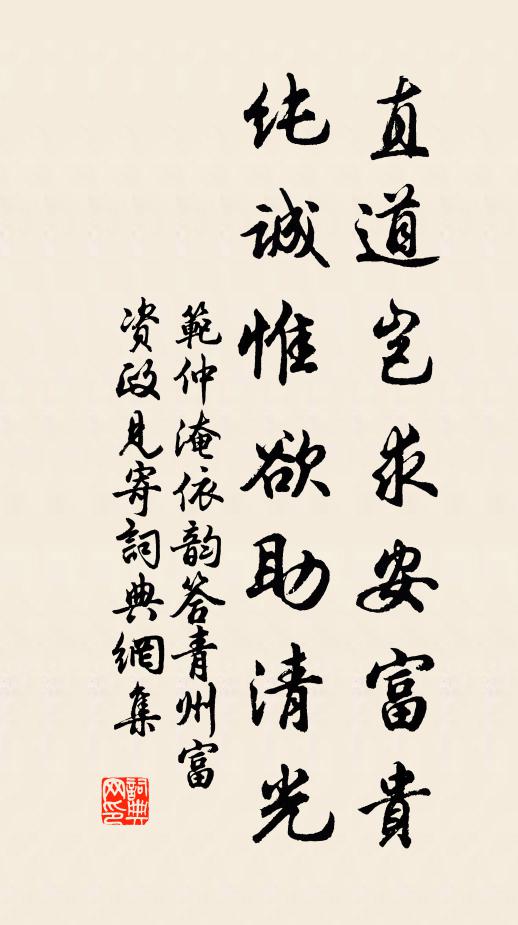 直道豈求安富貴
純誠惟欲助清光
範仲淹依韵答青州富
资政見寄詞典網集
詞典网印